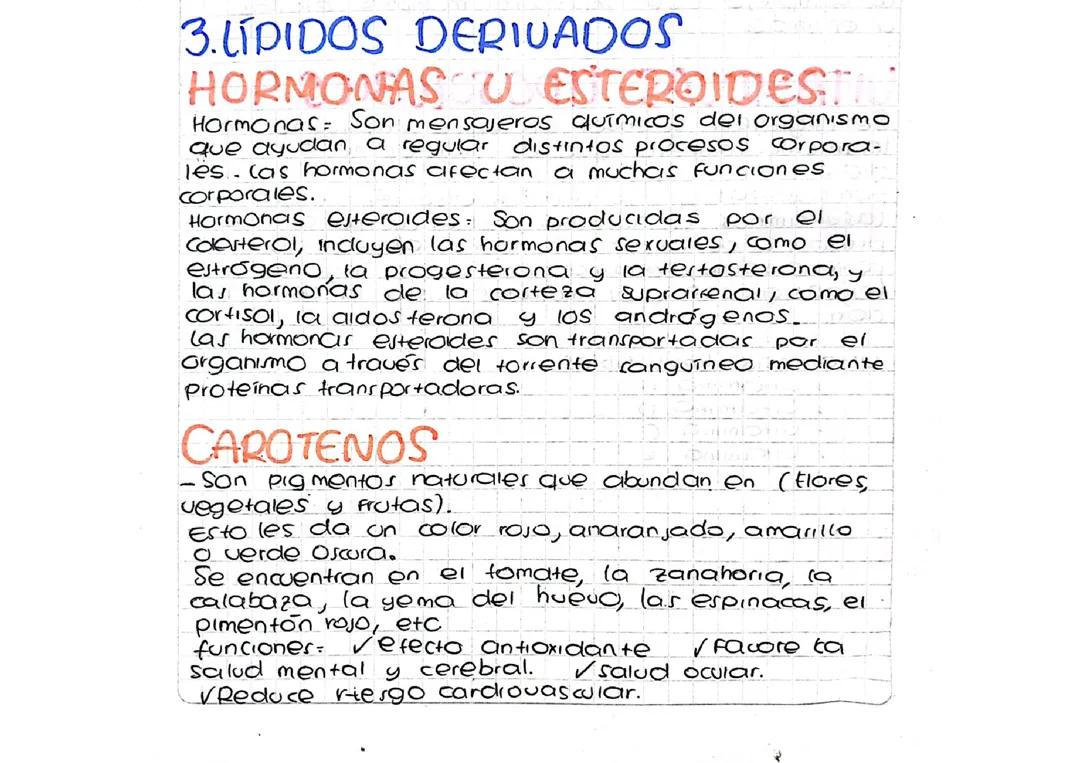 3. LÍPIDOS DERIVADOS
HORMONAS Y ESTEROIDES:
Hormonas: Son mensajeros químicos del organismo
que ayudan a regular distintos procesos corpora-
les. Las hormonas afectan a muchas funciones
corporales.
Hormonas esteroides: Son producidas por el
colesterol, incluyen las hormonas sexuales, como el
estrógeno, la progesterona y la testosterona, y
las hormonas de la corteza suprarrenal, como el
cortisol, la aldosterona y los andrógenos.
Las hormonas esteroides son transportadas por el
organismo a través del torrente sanguíneo mediante
proteínas transportadoras.
CAROTENOS
- Son pigmentos naturales que abundan en (flores,
vegetales y frutas).
Esto les da un color rojo, anaranjado, amarillo
o verde oscura.
Se encuentran en el tomate, la zanahoria, la
calabaza, la yema del huevo, las espinacas, el
pimentón rojo, etc
funciones: ✓efecto antioxidante ✓favore ta
salud mental y cerebral. ✓salud ocular.
✓Reduce riesgo cardiovascular.